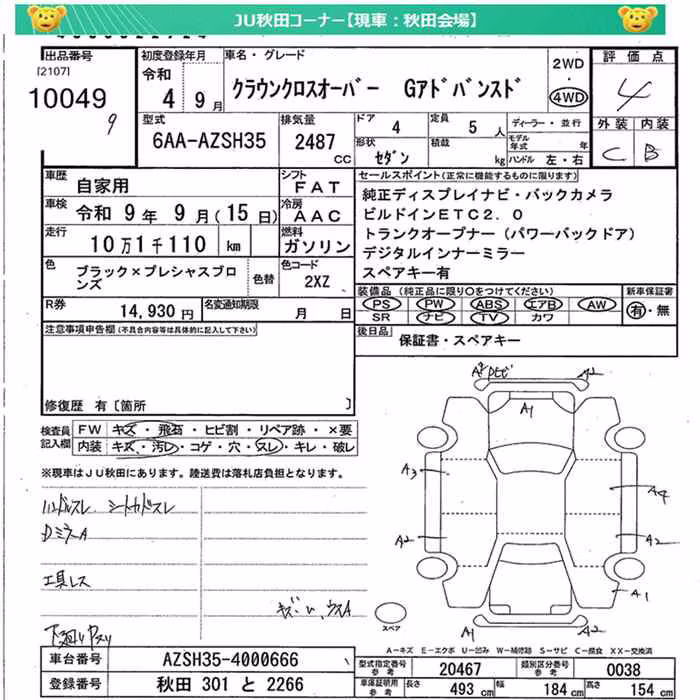 JU秋田コーナー【現車：秋田会場】
出品番号
[2107]
10049
9
初度登録年月
令和
4 9月
車名・グレード
クラウンクロスオーバー Gアドバンスド
2WD
・
4WD
評価点
4
型式
6AA-AZSH35
排気量
2487
CC
ドア
4
定員
5 人
形状
セダン
積載
kg
ディーラー・並行
モデル
年式 年
ハンドル 左・右
外装 内装
C B
車歴
自家用
シフト
FAT
車検
令和 9年 9月(15日)
冷房
AAC
走行
10万1千110 km
燃料
ガソリン
色
ブラック×プレシャスブロンズ
色替
色コード
2XZ
R券
14,930円
名変通知期限
月 日
セールスポイント(正常に機能するものに限ります)
純正ディスプレイナビ・バックカメラ
ビルドインETC2.0
トランクオープナー(パワーバックドア)
デジタルインナーミラー
スペアキー有
装備品(純正品に限り○をつけてください)
PS PW ABS エアB AW
SR ナビ TV カワ
新車保証書
有・無
後日品
保証書・スペアキー
注意事項申告欄(不具合内容等は具体的に記入して下さい)
修復歴 有〔箇所 〕
検査員
記入欄
FW キズ・飛石・ヒビ割・リペア跡・×要
内装 キズ・汚レ・コゲ・穴・スレ・キレ・破レ
※現車はJU秋田にあります。陸送費は落札店負担となります。
ハンドルスレ シートカドスレ
DミラーA
工具レス
下廻りヤスリ
A2
A1
A3
A4
A2
A2
A1
A1
スペア
A-キズ E-エクボ U-凹み W-補修跡 S-サビ C-腐食 XX-交換済
車台番号
AZSH35-4000666
登録番号
秋田 301 と 2266
型式指定番号
参考
20467
類別区分番号
参考
0038
車庫証明用
参考
長さ
493 cm
幅
184 cm
高さ
154 cm